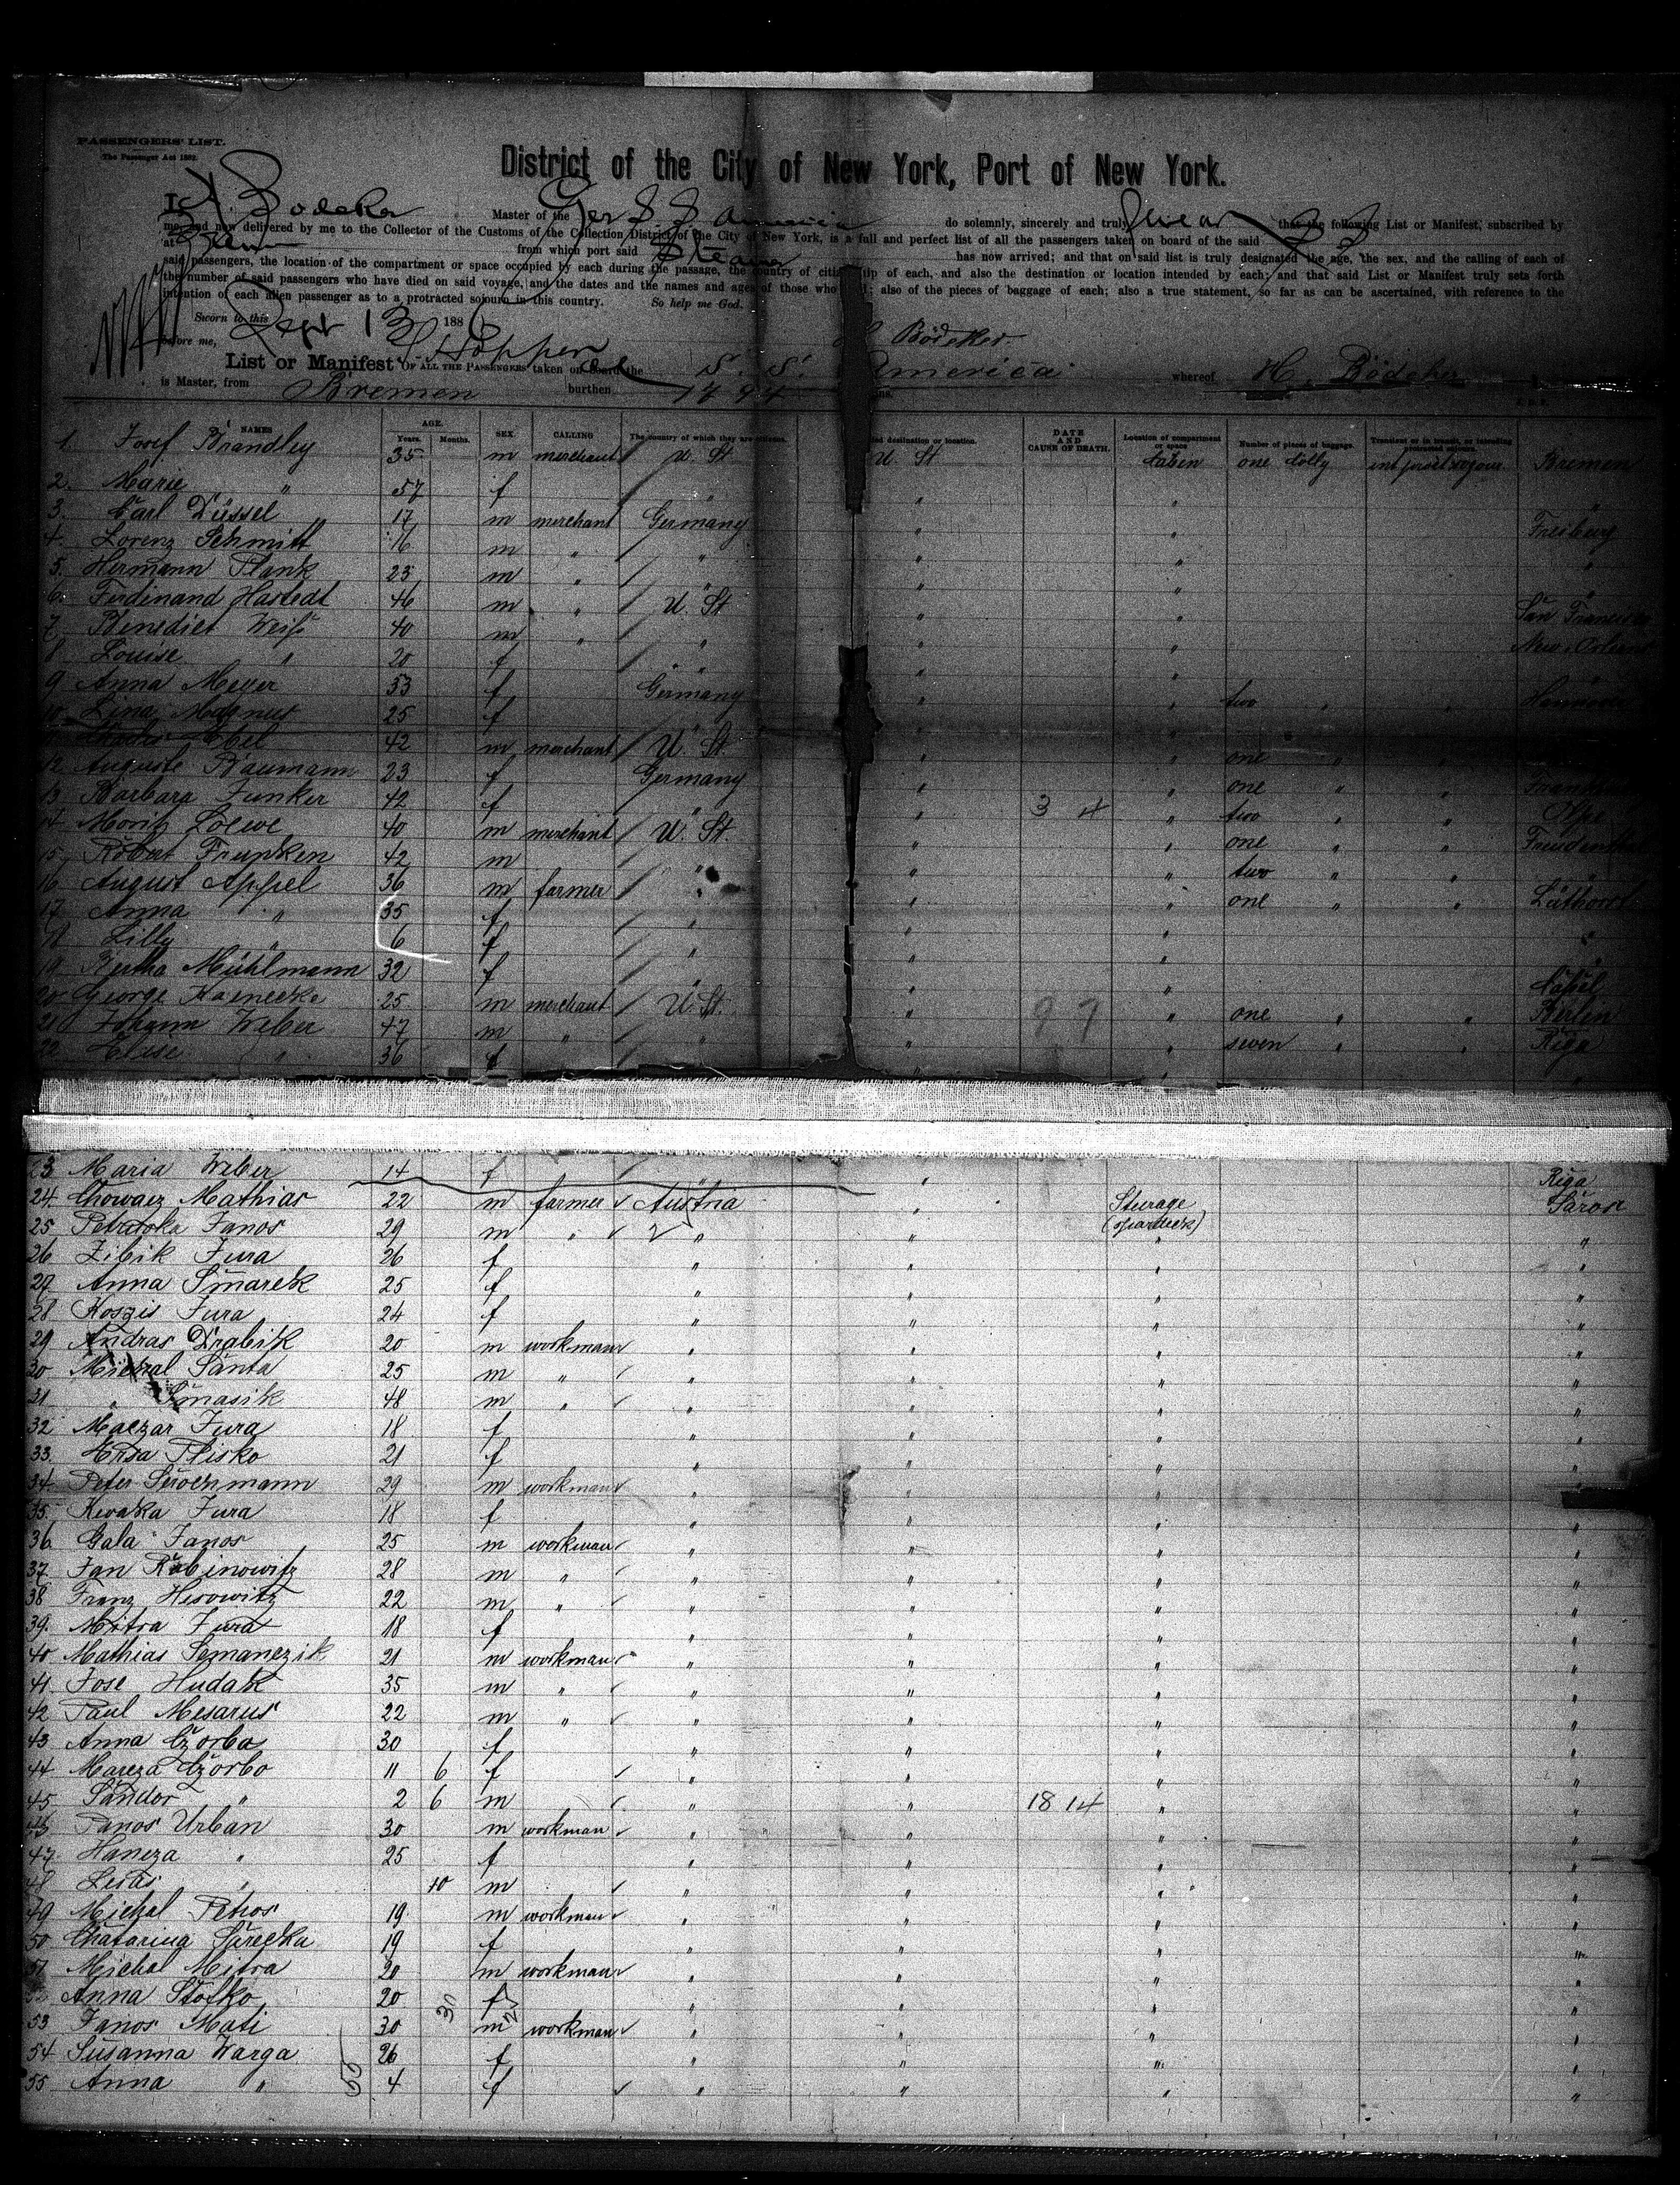 PASSENGERS' LIST.
The Passenger Act 1882.
District of the City of New York, Port of New York.
I, H. Bödeker Master of the Ger S S America do solemnly, sincerely and truly Swear that the following List or Manifest, subscribed by
me, and now delivered by me to the Collector of the Customs of the Collection District of the City of New York, is a full and perfect list of all the passengers taken on board of the said S S
at Bremen from which port said Steamer has now arrived; and that on said list is truly designated the age, the sex, and the calling of each of
said passengers, the location of the compartment or space occupied by each during the passage, the country of citizenship of each, and also the destination or location intended by each; and that said List or Manifest truly sets forth
the number of said passengers who have died on said voyage, and the dates and the names and ages of those who also of the pieces of baggage of each; also a true statement, so far as can be ascertained, with reference to the
intention of each alien passenger as to a protracted sojourn in this country. So help me God.
Sworn to this Sept 13 188
before me, H. Bödeker
List or Manifest OF ALL THE PASSENGERS taken on board the S. S. America whereof H. Bödeker
is Master, from Bremen burthen tons.
NAMES AGE. Years. Months. SEX. CALLING The country of which they are citizens. destination or location. DATE AND CAUSE OF DEATH. Location of compartment or space Number of pieces of baggage. Transient or in transit, or intending protracted sojourn.
1. Josef Brandley 35 m merchant U. St. U. St. Cabin one Colly Bremen
2. Marie " 57 f " " "
3. Carl Düssel 17 m merchant Germany " " Freiberg
4. Lorenz Schmitt 16 m " " " " "
5. Hermann Plank 23 m " " " " "
6. Ferdinand Hastedt 46 m " U. St " " San Francisco
7. Benedict Weiß 40 m " " " " New Orleans
8 Louise " 20 f " " " "
9 Anna Meyer 53 f Germany " " two " " Hannover
10 Lina Magnus 25 f
11 Ebel 42 m merchant U. St. " " one " "
12 Auguste Baumann 23 f Germany " " one " "
13 Barbara Junker 42 f " " 3 4 " two " " Olpe
14 Moritz Loewe 40 m merchant U. St. " " one " " Freudenthal
15 Robert 42 m " " " two " " "
16 August Appel 36 m farmer " " " one " " Lüthorst
17 Anna " 35 f " " " "
18 Lilly " 6 f " " " "
19 Bertha Mühlmann 32 f " " " Cassel
20 George Kaenecke 25 m merchant U. St. " 97 " one " " Berlin
21 Johann Weber 47 m " " " " seven " " Riga
22 Elise " 36 f " " " "
23 Maria Weber 14 f " " Riga
24. Chowaez Mathias 22 m farmer Austria " Steerage Saros
25 Petruska Janos 29 m " " " (spardeck) " "
26 Zibik Jura 26 f " " " "
27 Anna Smarek 25 f " " " "
28 Koszis Jura 24 f " " " "
29 Andras Drabik 20 m workman " " " "
30 Michal Santa 25 m " " " " "
31 " Smasik 48 m " " " " "
32 Maczar Jura 18 f " " " "
33. Ersa Plisko 21 f " " " "
34 Peter 29 m workman " " " "
35. Kwaka Jura 18 f " " " "
36 Gala Janos 25 m workman " " " "
37. Jan Rabinowitz 28 m " " " " "
38 Franz Herowitz 22 m " " " " "
39. Mitra Jura 18 f " " " "
40 Mathias Semanczik 21 m workman " " " "
41 Jose Hudak 35 m " " " " "
42 Paul Mesarus 22 m " " " " "
43 Anna Czorba 30 f " " " "
44 Marcza Czorbo 11 6 f " " " "
45 Sandor " 2 6 m " " 18 14 " "
46 Janos Urban 30 m workman " " " "
47 Hancza " 25 f " " " "
48 " 10 m " " " "
49 Michal Petros 19 m workman " " " "
50 Chatarina 19 f " " " "
51 Michal Mitra 20 m workman " " " "
52 Anna Stofko 20 f " " " "
53 Janos Mati 30 m workman " " " "
54 Susanna Warga 26 f " " " "
55 Anna " 4 f " " " "
55 30